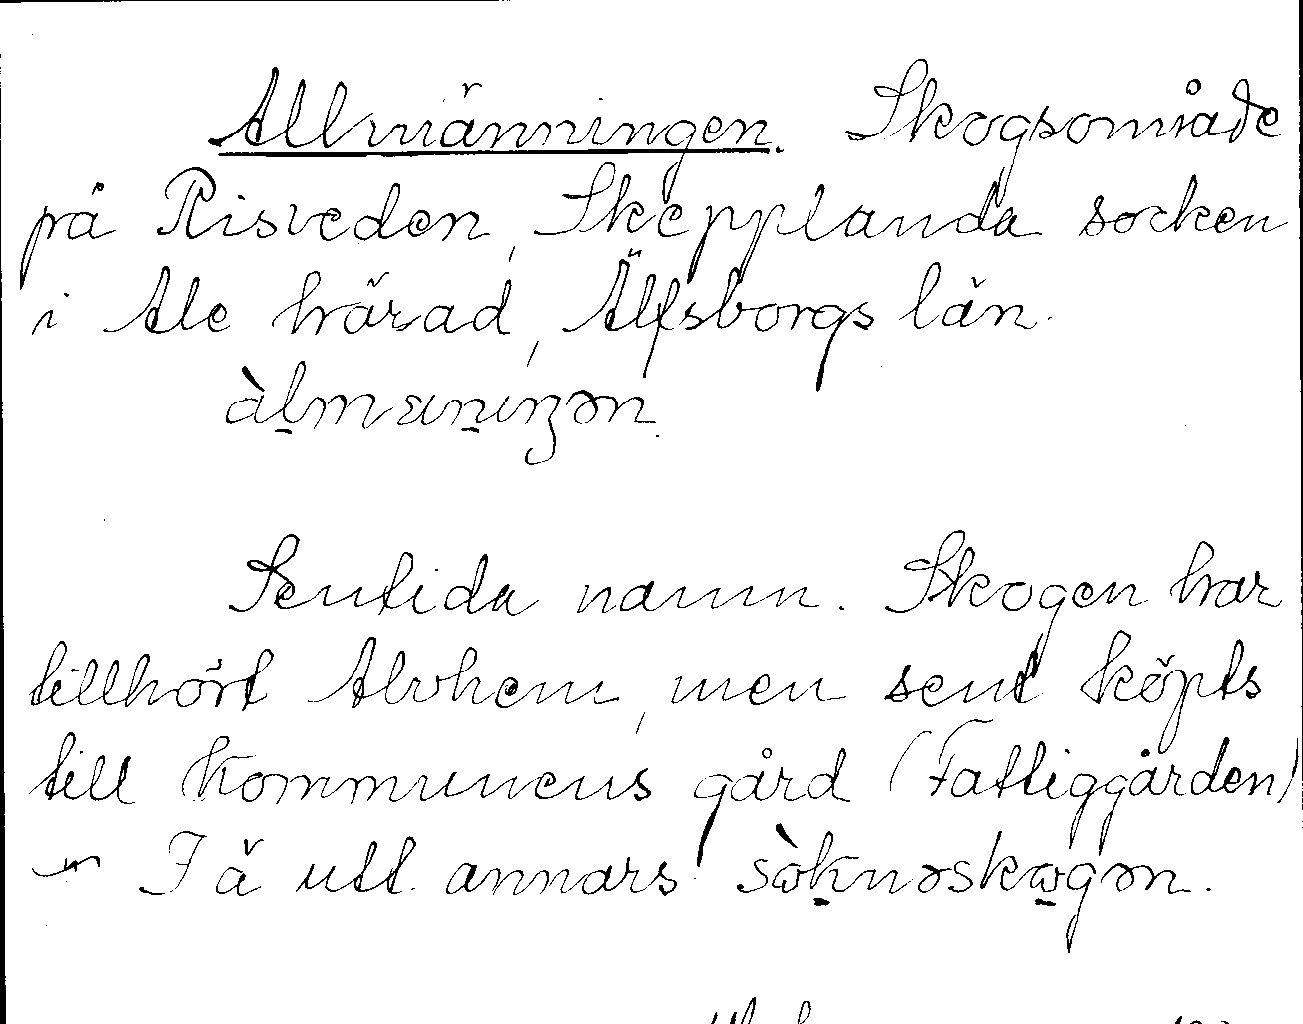 Allmänningen. Skogsområde
på Risveden, Skepplanda socken
i Ale härad, Älfsborgs län.
àlmænıŋən.
Sentida namn. Skogen har
tillhört Alvhem, men sent köpts
till kommunens gård (Fattiggården)
— I ä utt. annars sòknəskogən.